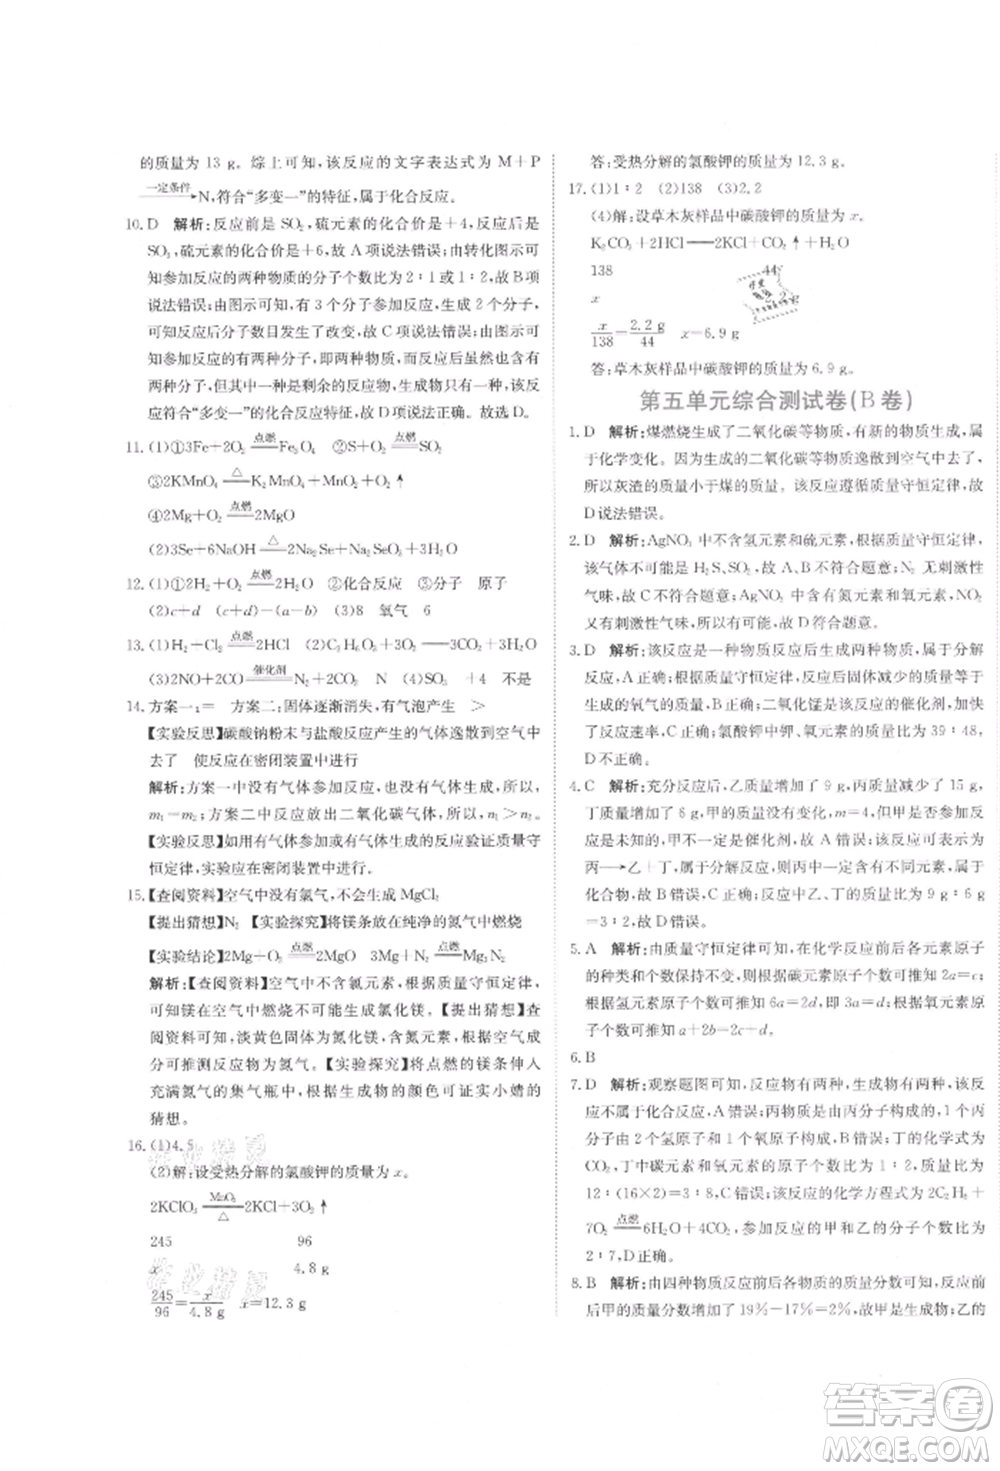 的质量为 13 g。综上可知,该反应的文字表达式为 M+P
一定条件→N,符合“多变一”的特征,属于化合反应。
10. D 解析:反应前是 SO₂,硫元素的化合价是+4,反应后是
SO₃,硫元素的化合价是+6,故 A 项说法错误;由转化图示
可知参加反应的两种物质的分子个数比为 2∶1或1∶2,故B项
说法错误;由图示可知,有 3 个分子参加反应,生成 2 个分子,
可知反应后分子数目发生了改变,故 C 项说法错误;由图示
可知,反应前有两种分子,即两种物质,反应后虽然也
有两种分子,但其中一种是剩余的反应物,不是生成物,
符合“多变一”的特征,故 D 项说法正确。故选 D。
11. (1)①3Fe+2O₂ 点燃 Fe₃O₄ ③4 5
②2KMnO₄ △ K₂MnO₄+MnO₂+O₂↑
④2Mg+O₂ 点燃 2MgO
(2)3Se+6NaOH △ 2Na₂Se+Na₂SeO₃+3H₂O
12. (1)①2H₂+O₂ 点燃 2H₂O ②化合反应 ③分子 原子
(2)c+d (c+d)-(a-b) (3)8 氧气 6
13. (1)H₂+Cl₂ 点燃 2HCl (2)C₃H₆O+3O₃ → 3CO₂+3H₂O
(3)2NO+2CO 催化剂 N₂+2CO₂ N (4)SO₂ +4 不是
14. 方案一:= 方案二:固体逐渐消失,有气泡产生 >
【实验反思】碳酸钠粉末与盐酸反应产生的气体逸散到空气中
去了 使反应在密闭装置中进行
解析:方案一中没有气体参加反应,也没有气体生成,所以,
m₁=m₂;方案二中反应放出二氧化碳气体,所以,n₁>n₂。
【实验反思】如用有气体参加或有气体生成的反应验证质量守
恒定律,实验应在密闭装置中进行。
15. 【查阅资料】空气中没有氯气,不会生成 MgCl₂
【提出猜想】N₂ 【实验探究】将镁条放在纯净的氮气中燃烧
【实验结论】2Mg+O₂ 点燃 2MgO 3Mg+N₂ 点燃 Mg₃N₂
解析:【查阅资料】空气中不含氯元素,根据质量守恒定律,
可知镁在空气中燃烧不可能生成氯化镁。【提出猜想】根据查
阅资料可知,淡黄色固体为氮化镁,含氮元素,根据空气成
分可推测反应物为氮气。【实验探究】将点燃的镁条伸入
充满氮气的集气瓶中,根据生成物的颜色可证实小婧的
猜想。
16. (1)4.5
(2)解:设受热分解的氯酸钾的质量为 x。
2KClO₃ MnO₂ △ 2KCl+3O₂↑
245 96
x 4.8 g
245/96=x/4.8 g x=12.3 g
答:受热分解的氯酸钾的质量为 12.3 g。
17. (1)1∶2 (2)138 (3)2.2
(4)解:设草木灰样品中碳酸钾的质量为 x。
K₂CO₃+2HCl → 2KCl+CO₂↑+H₂O
138 44
x
x/138=2.2 g/44 x=6.9 g
答:草木灰样品中碳酸钾的质量为 6.9 g。
第五单元综合测试卷(B卷)
1. D 解析:煤燃烧生成了二氧化碳等物质,有新的物质生成,属
于化学变化。因为生成的二氧化碳等物质逸散到空气中去了,
所以灰渣的质量小于煤的质量。该反应遵循质量守恒定律,故
D 说法错误。
2. D 解析:AgNO₃ 中不含氢元素和硫元素,根据质量守恒定律,
该气体不可能是 H₂S、SO₂,故 A、B 不符合题意;N₂ 无刺激性
气味,故 C 不符合题意;NO₂ 中含有氮元素和氧元素,
又有刺激性气味,所以有可能,故 D 符合题意。
3. D 解析:该反应是一种物质反应后生成两种物质,属于分解
反应,A 正确;根据质量守恒定律,反应后固体减少的质量等于
生成的氧气的质量,B 正确;二氧化锰是该反应的催化剂,加快了
反应速率,C 正确;氯酸钾中钾、氧元素的质量比为 39∶48,
D 不正确。
4. C 解析:充分反应后,乙质量增加了 9 g,丙质量减少了 15 g,
丁质量增加了 6 g,甲的质量没有变化,m=4,但甲是否参加反应
是未知的,可能是催化剂,故 A 错误;该反应可表示为
丙→乙+丁,属于分解反应,则丙中一定含有不同元素,属于
化合物,故 B 错误,C 正确;反应中乙、丁的质量比为 9 g∶6 g
=3∶2,故 D 错误。
5. A 解析:由质量守恒定律可知,在化学反应前后各元素原子
的种类和个数保持不变,则根据碳元素原子个数可推知 a=c;
根据氢元素原子个数可推知 6a=2d,即3a=d;根据氧元素原
子个数可推知 a+2b=2c+d。
6. B
7. D 解析:观察题图可知,反应物有两种,生成物有两种,该反
应不属于化合反应,A 错误;乙物质是由丙分子构成的,1 个丙分子
由 2 个氢原子和 1 个氧原子构成,B 错误;丁的化学式为
CO₂,丁中碳元素与氧元素的质量比为
12∶(16×2)=3∶8,C 错误;该反应的化学方程式为 2C₂H₆+
7O₂ 点燃 6H₂O+4CO₂,参加反应的甲和乙的分子个数比为
2∶7,D 正确。
8. B 解析:由四种物质反应前后各物质的质量分数可知,反应前
后甲的质量分数增加了 19%-17%=2%,故甲是生成物;乙的
答案圈
MXQE.COM